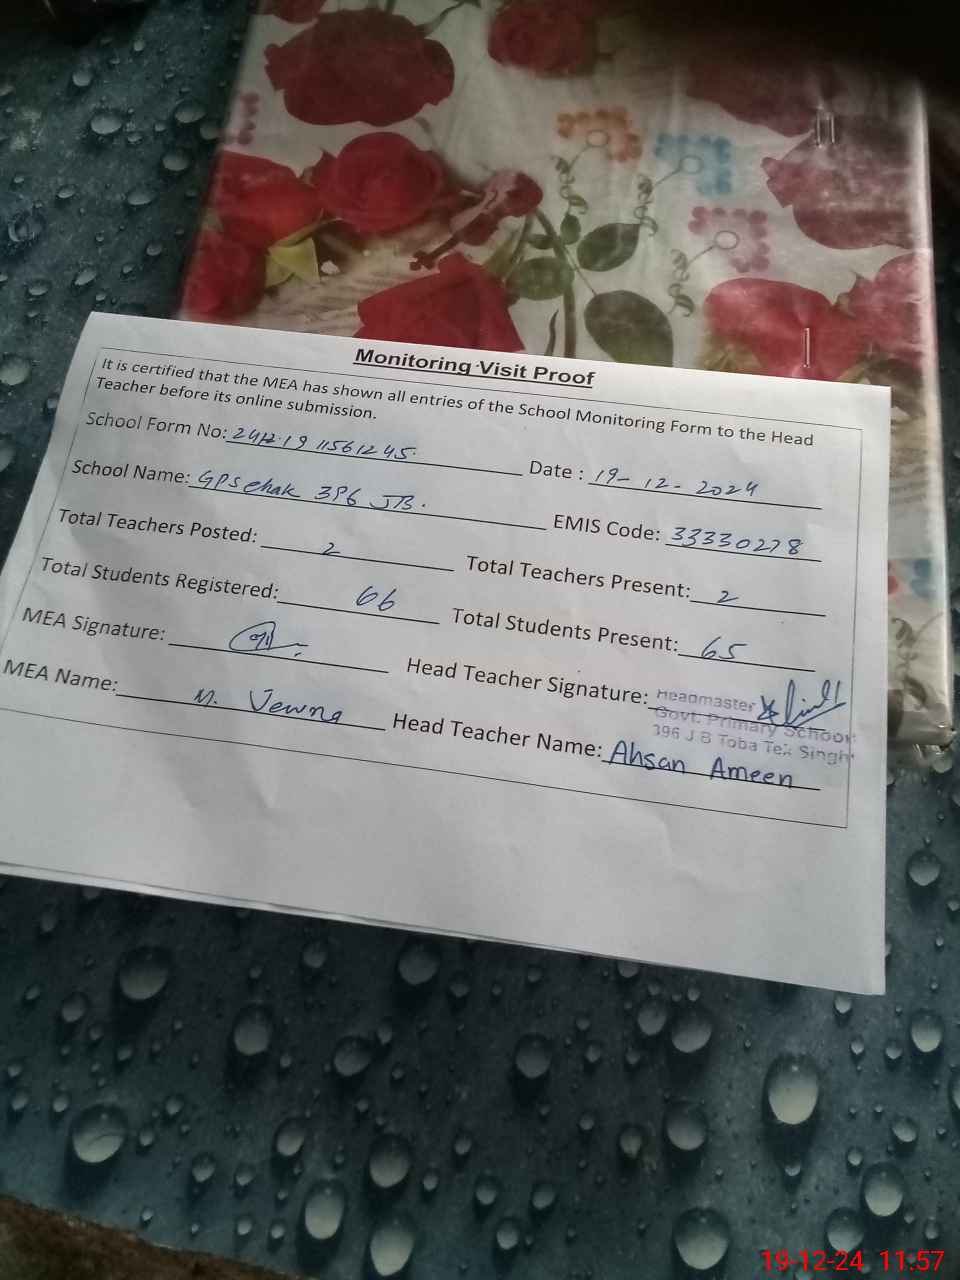 Monitoring Visit Proof
It is certified that the MEA has shown all entries of the School Monitoring Form to the Head
Teacher before its online submission.
School Form No: Date : 19-12-2024
School Name: GPS chak 396 JB. EMIS Code: 33330278
Total Teachers Posted: 2 Total Teachers Present: 2
Total Students Registered: 66 Total Students Present: 65
MEA Signature: Head Teacher Signature:
Headmaster
Govt. Primary School
396 J B Toba Tek Singh
MEA Name: M. Head Teacher Name: Ahsan Ameen
19-12-24 11:57